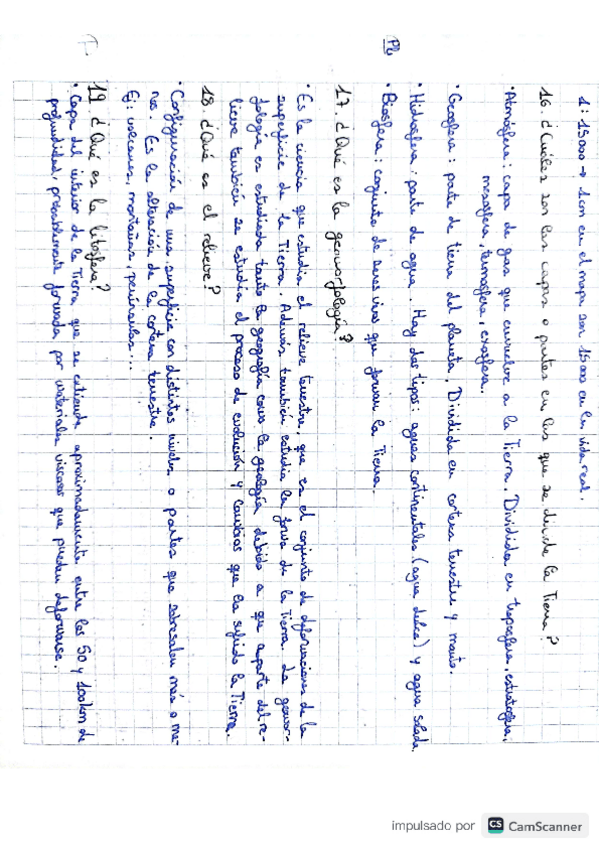 1:15000 → 1cm en el mapa son 15000 en la vida real.
16. ¿Cuáles son las capas o partes en las que se divide la Tierra?
· Atmósfera: capa de gas que envuelve a la Tierra. Dividida en troposfera, estratosfera,
mesosfera, termosfera, exosfera.
· Geosfera: parte de tierra del planeta. Dividida en corteza terrestre y manto.
· Hidrosfera: parte de agua. Hay dos tipos: aguas continentales (agua dulce) y agua salada.
· Biosfera: conjunto de seres vivos que forman la Tierra.
17. ¿Qué es la geomorfología?
· Es la ciencia que estudia el relieve terrestre, que es el conjunto de deformaciones de la
superficie de la Tierra. Además también estudia la forma de la Tierra. La geomor-
fología es estudiada tanto la geografía como la geología debido a que aparte del re-
lieve también se estudia el proceso de evolución y cambios que ha sufrido la Tierra.
18. ¿Qué es el relieve?
· Configuración de una superficie con distintos niveles o partes que sobresalen más o me-
nos. Es la alteración de la corteza terrestre.
Ej: volcanes, montañas, penínsulas...
19. ¿Qué es la litosfera?
· Capa del interior de la Tierra que se extiende aproximadamente entre los 50 y 100km de
profundidad, probablemente formada por materiales viscosos que pueden deformarse.
impulsado por CS CamScanner